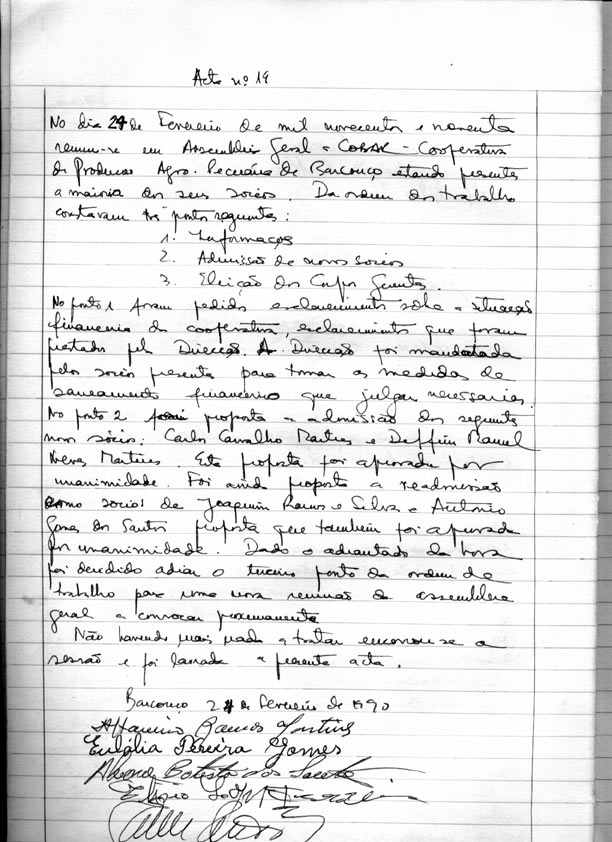 Acta nº 19
No dia 24 de Fevereiro de mil novecentos e noventa
reuniu-se em Assembleia Geral a COBAR - Cooperativa
de Produção Agro-Pecuária de Barcouço estando presentes
a maioria dos seus socios. Da ordem do trabalho
constavam os pontos seguintes:
1. Informações
2. Admissão de novos socios
3. Eleição dos Corpos Gerentes.
No ponto 1 foram pedidos esclarecimentos sobre a situação
financeira da cooperativa, esclarecimentos que foram
prestados pela Direcção. A Direcção foi mandatada
pelos socios presentes para tomar as medidas de
saneamento financeiro que julgar necessarias.
No ponto 2 proposta a admissão dos seguintes
novos sócios: Carlos Carvalho Martins e Delfim Manuel
Neves Martins. Esta proposta foi aprovada por
unanimidade. Foi ainda proposta a readmissão
como socios de Joaquim Ramos e Silva e Antonio
Gomes dos Santos proposta que também foi aprovada
por unanimidade. Dado o adiantado da hora
foi decidido adiar o terceiro ponto da ordem de
trabalho para uma nova reunião da assembleia
geral a convocar proximamente
Não havendo mais nada a tratar encerrou-se a
sessão e foi lavrada a presente acta.
Barcouço 24 de Fevereiro de 1990
Ramos Martins
Eulália Pereira Gomes
Batista dos Santos